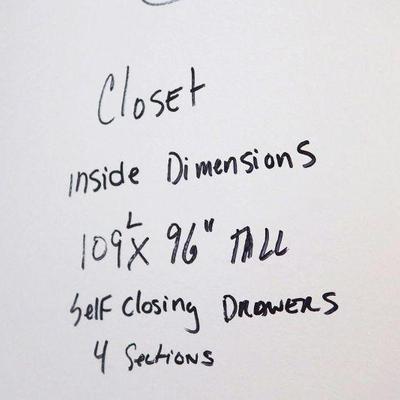 Closet
Inside Dimensions
109 L X 96" TALL
Self Closing DRAWERS
4 Sections